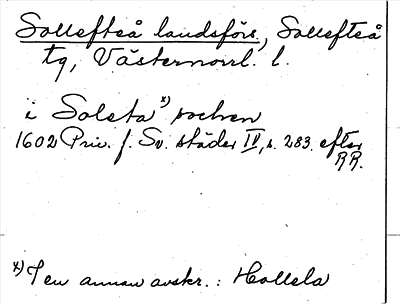 Sollefteå landsförs., Sollefteå
tg, Västernorrl. l.
i Solsta x) socknen
1602 Priv. f. Sv. städer IV, s. 283. efter
RR.
x) I en annan avskr.: Hollsla